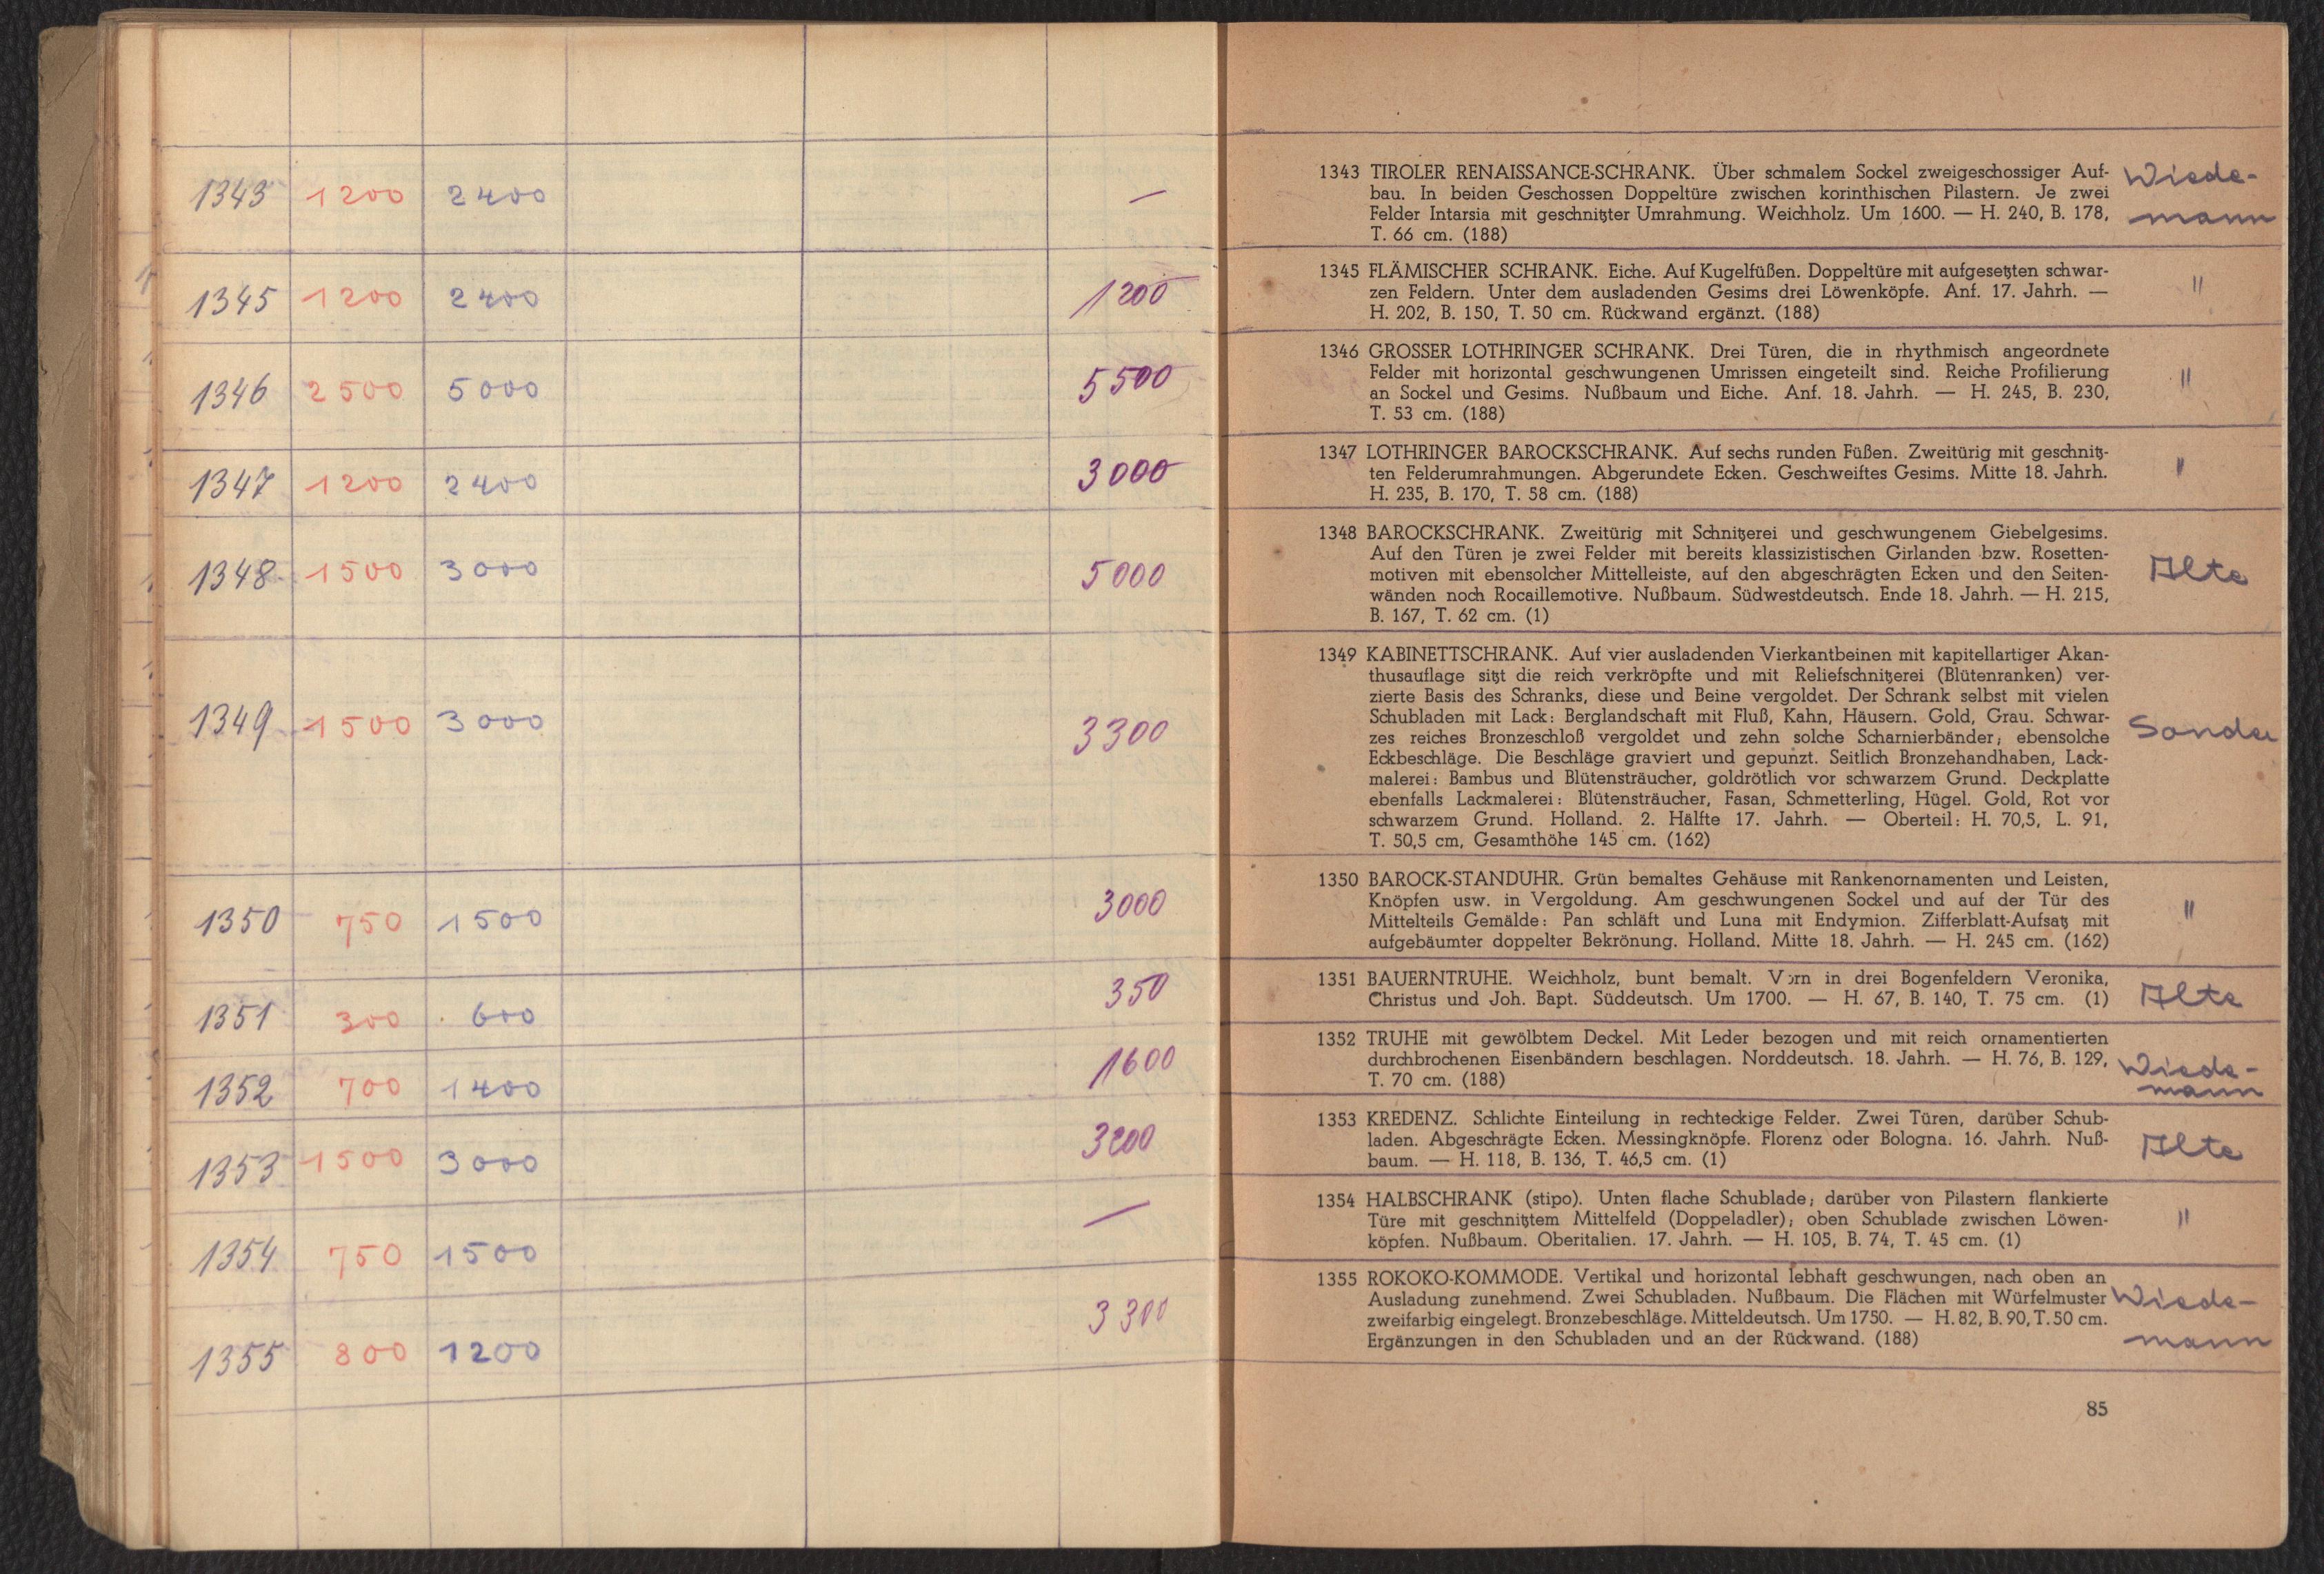 1343 1200 2400 —
1345 1200 2400 1200
1346 2500 5000 5500
1347 1200 2400 3000
1348 1500 3000 5000
1349 1500 3000 3300
1350 750 1500 3000
1351 300 600 350
1352 700 1400 1600
1353 1500 3000 3200
1354 750 1500 —
1355 800 1200 3300
1343 TIROLER RENAISSANCE-SCHRANK. Über schmalem Sockel zweigeschossiger Auf-
bau. In beiden Geschossen Doppeltüre zwischen korinthischen Pilastern. Je zwei
Felder Intarsia mit geschnitzter Umrahmung. Weichholz. Um 1600. — H. 240, B. 178,
T. 66 cm. (188)
Wiede-
mann
1345 FLÄMISCHER SCHRANK. Eiche. Auf Kugelfüßen. Doppeltüre mit aufgesetzten schwar-
zen Feldern. Unter dem ausladenden Gesims drei Löwenköpfe. Anf. 17. Jahrh. —
H. 202, B. 150, T. 50 cm. Rückwand ergänzt. (188)
"
1346 GROSSER LOTHRINGER SCHRANK. Drei Türen, die in rhythmisch angeordnete
Felder mit horizontal geschwungenen Umrissen eingeteilt sind. Reiche Profilierung
an Sockel und Gesims. Nußbaum und Eiche. Anf. 18. Jahrh. — H. 245, B. 230,
T. 53 cm. (188)
"
1347 LOTHRINGER BAROCKSCHRANK. Auf sechs runden Füßen. Zweitürig mit geschnitz-
ten Felderumrahmungen. Abgerundete Ecken. Geschweiftes Gesims. Mitte 18. Jahrh.
H. 235, B. 170, T. 58 cm. (188)
"
1348 BAROCKSCHRANK. Zweitürig mit Schnitzerei und geschwungenem Giebelgesims.
Auf den Türen je zwei Felder mit bereits klassizistischen Girlanden bzw. Rosetten-
motiven mit ebensolcher Mittelleiste, auf den abgeschrägten Ecken und den Seiten-
wänden noch Rocaillemotive. Nußbaum. Südwestdeutsch. Ende 18. Jahrh. — H. 215,
B. 167, T. 62 cm. (1)
Alte
1349 KABINETTSCHRANK. Auf vier ausladenden Vierkantbeinen mit kapitellartiger Akan-
thusauflage sitzt die reich verkröpfte und mit Reliefschnitzerei (Blütenranken) ver-
zierte Basis des Schranks, diese und Beine vergoldet. Der Schrank selbst mit vielen
Schubladen mit Lack: Berglandschaft mit Fluß, Kahn, Häusern. Gold, Grau. Schwar-
zes reiches Bronzeschloß vergoldet und zehn solche Scharnierbänder; ebensolche
Eckbeschläge. Die Beschläge graviert und gepunzt. Seitlich Bronzehandhaben, Lack-
malerei: Bambus und Blütensträucher, goldrötlich vor schwarzem Grund. Deckplatte
ebenfalls Lackmalerei: Blütensträucher, Fasan, Schmetterling, Hügel. Gold, Rot vor
schwarzem Grund. Holland. 2. Hälfte 17. Jahrh. — Oberteil: H. 70,5, L. 91,
T. 50,5 cm, Gesamthöhe 145 cm. (162)
1350 BAROCK-STANDUHR. Grün bemaltes Gehäuse mit Rankenornamenten und Leisten,
Knöpfen usw. in Vergoldung. Am geschwungenen Sockel und auf der Tür des
Mittelteils Gemälde: Pan schläft und Luna mit Endymion. Zifferblatt-Aufsatz mit
aufgebäumter doppelter Bekrönung. Holland. Mitte 18. Jahrh. — H. 245 cm. (162)
"
1351 BAUERNTRUHE. Weichholz, bunt bemalt. Vorn in drei Bogenfeldern Veronika,
Christus und Joh. Bapt. Süddeutsch. Um 1700. — H. 67, B. 140, T. 75 cm. (1)
Alte
1352 TRUHE mit gewölbtem Deckel. Mit Leder bezogen und mit reich ornamentierten
durchbrochenen Eisenbändern beschlagen. Norddeutsch. 18. Jahrh. — H. 76, B. 129,
T. 70 cm. (188)
Wiede-
mann
1353 KREDENZ. Schlichte Einteilung in rechteckige Felder. Zwei Türen, darüber Schub-
laden. Abgeschrägte Ecken. Messingknöpfe. Florenz oder Bologna. 16. Jahrh. Nuß-
baum. — H. 118, B. 136, T. 46,5 cm. (1)
Alte
1354 HALBSCHRANK (stipo). Unten flache Schublade; darüber von Pilastern flankierte
Türe mit geschnitztem Mittelfeld (Doppeladler); oben Schublade zwischen Löwen-
köpfen. Nußbaum. Oberitalien. 17. Jahrh. — H. 105, B. 74, T. 45 cm. (1)
"
1355 ROKOKO-KOMMODE. Vertikal und horizontal lebhaft geschwungen, nach oben an
Ausladung zunehmend. Zwei Schubladen. Nußbaum. Die Flächen mit Würfelmuster
zweifarbig eingelegt. Bronzebeschläge. Mitteldeutsch. Um 1750. — H. 82, B. 90, T. 50 cm.
Ergänzungen in den Schubladen und an der Rückwand. (188)
Wiede-
mann
85